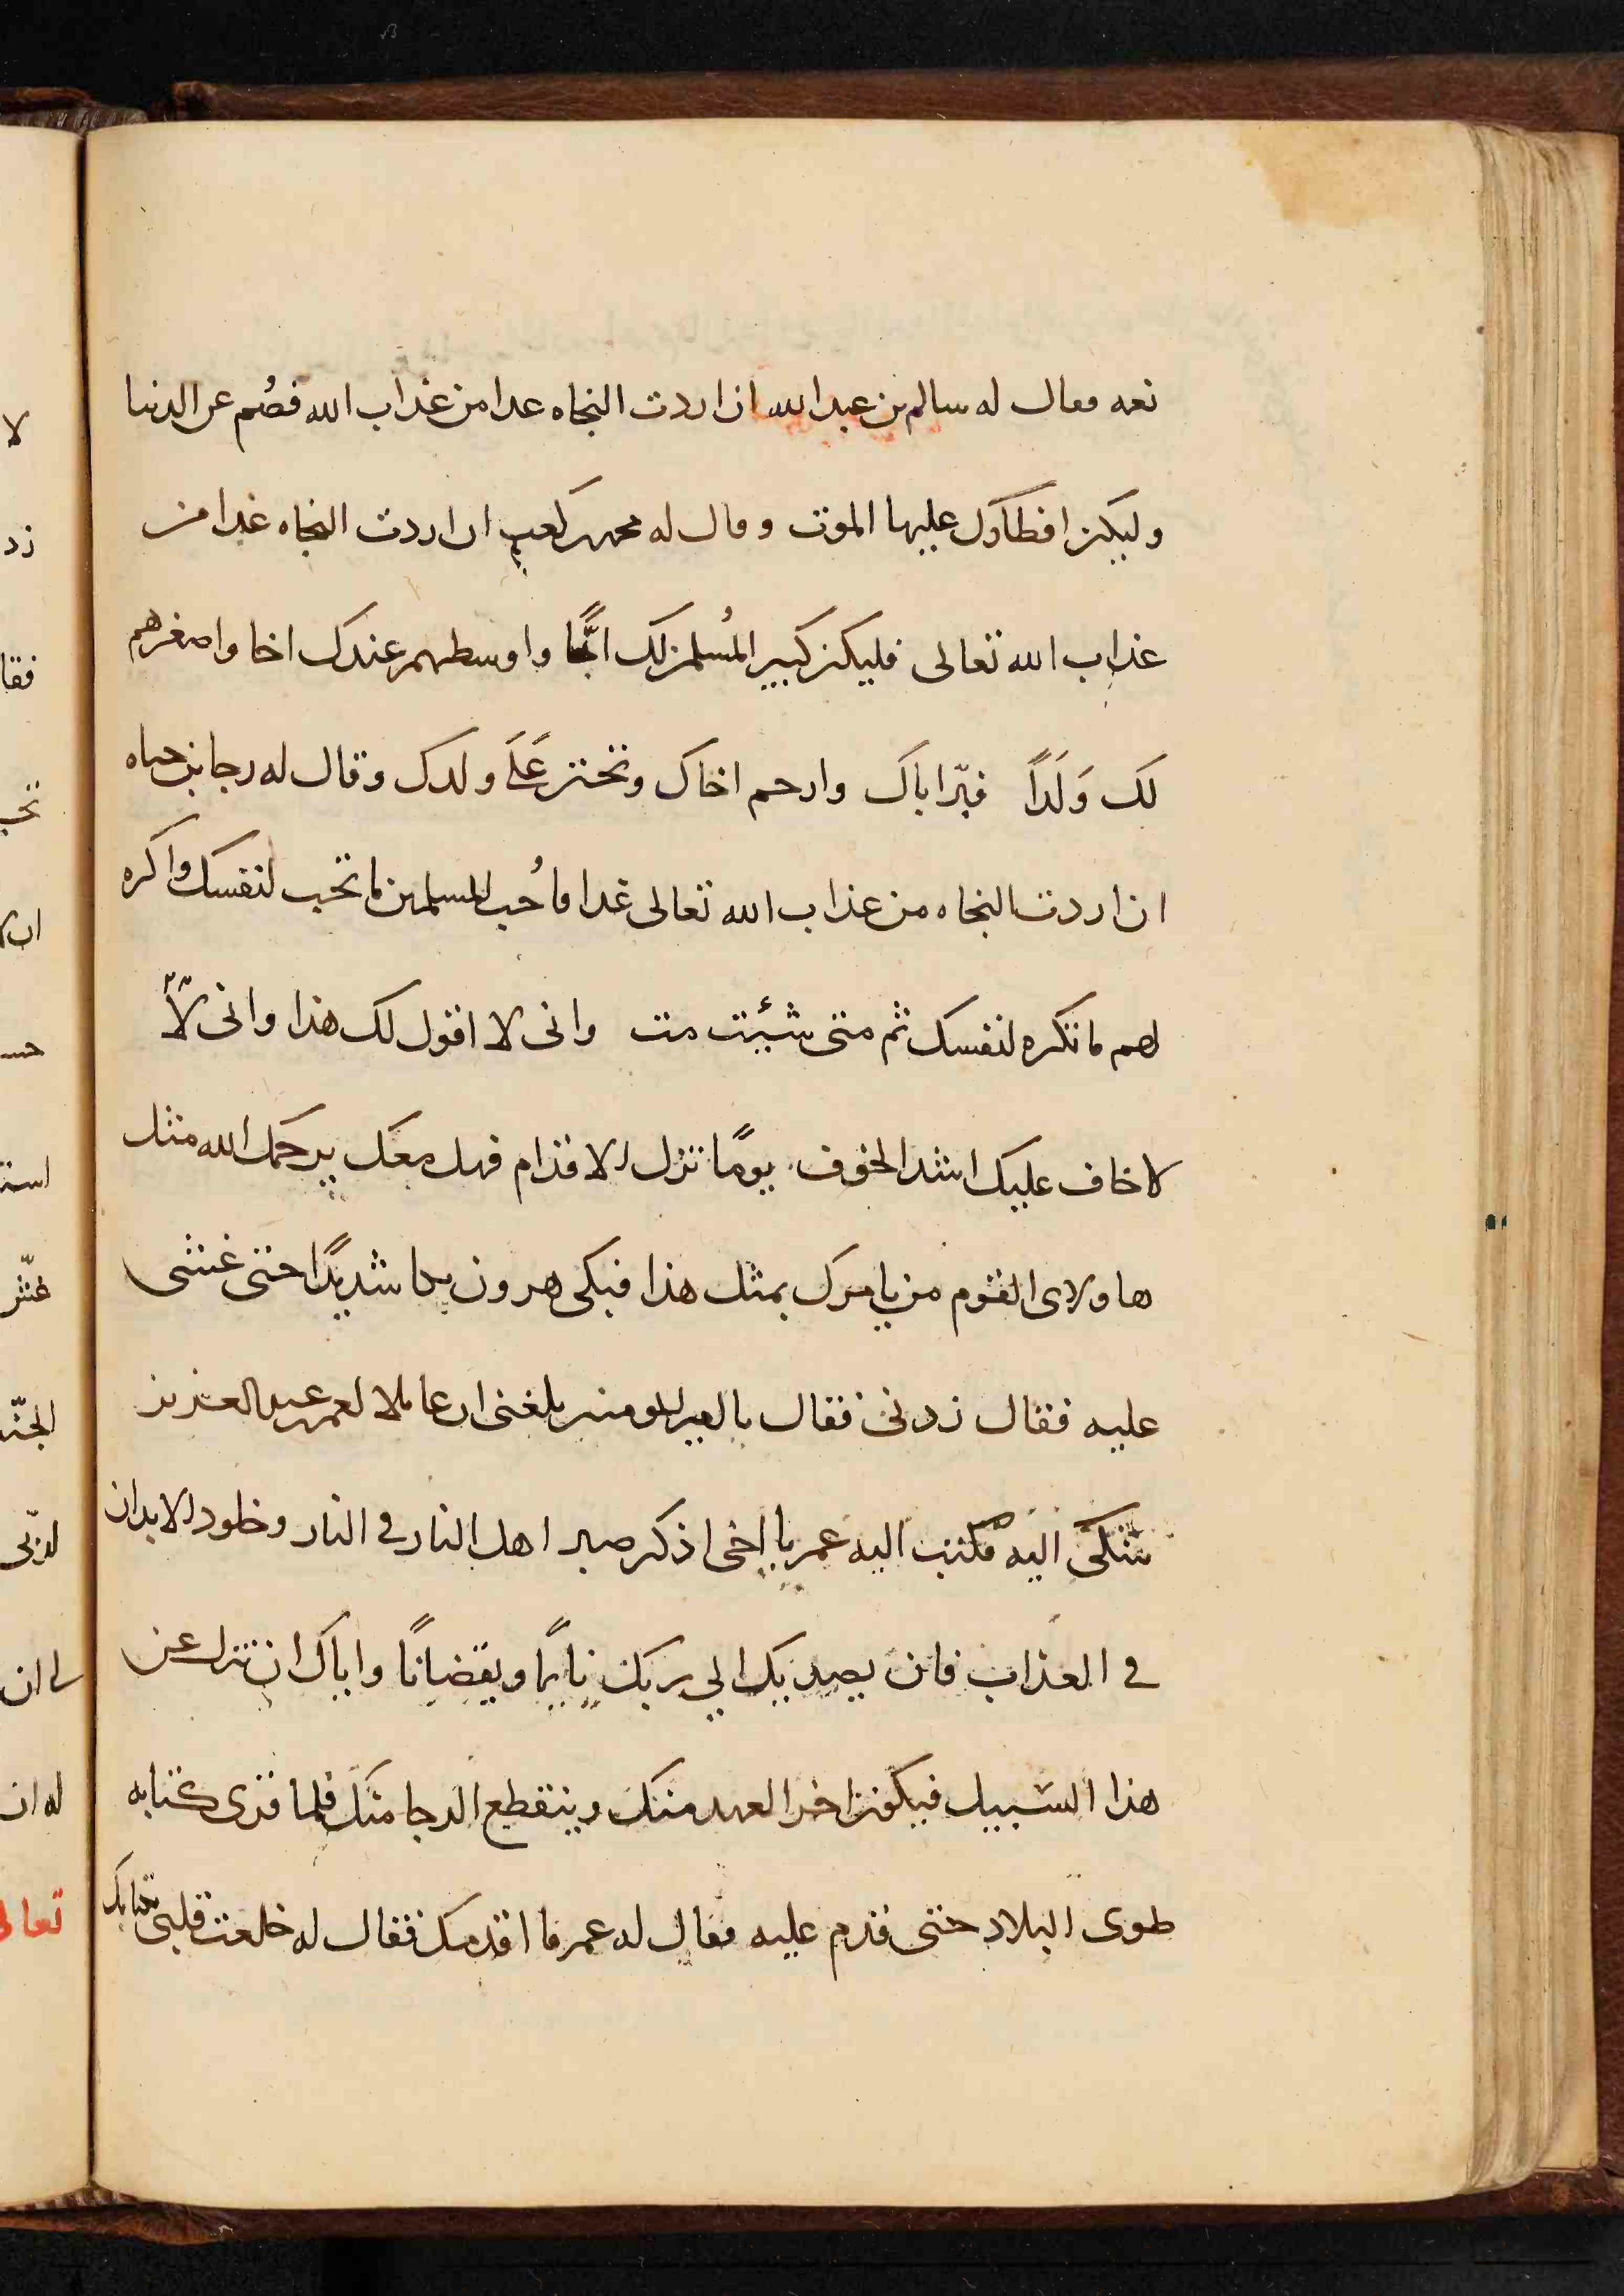 نعمه فقال له سالم بن عبد الله ان اردت النجاه غدا من عذاب الله فصُم عن الدنيا
وليكن افطارك عليها الموت وقال له محمد بن كعب ان اردت النجاه غدا من
عذاب الله تعالى فليكن كبير المُسلمين لك ابًا واوسطهم عندك اخا واصغرهم
لك وَلَدًا فبرّ اباك وارحم اخاك وتحنن عَلَى ولدك وقال له رجا بن حياه
ان اردت النجاه من عذاب الله تعالى غدا فاُحب للمسلمين ما تحب لنفسك واكره
لهم ما تكره لنفسك ثم متى شئت مت وانى لا اقول لك هذا وانى
لاخاف عليك اشد الخوف يومًا تزل الاقدام فهل معك يرحمك الله مثل
هاولاى القوم من يامرك بمثل هذا فبكى هرون بكا شديدًا حتى غشى
عليه فقال زدنى فقال يا امير المومنين بلغنى ان عاملا لعمر بن عبد العزيز
شكى اليه فكتب اليه عمر يا اخى اذكر صبر اهل النار فى النار وخلود الابدان
فى العذاب فان يصد بك الى ربك نايمًا ويقضانًا واياك ان تزل عن
هذا السبيل فيكون اخر العهد منك وينقطع الرجا منك فلما قرى كتابه
طوى البلاد حتى قدم عليه فقال له عمر ما اقدمك فقال له خلعت قلبى بكتابك